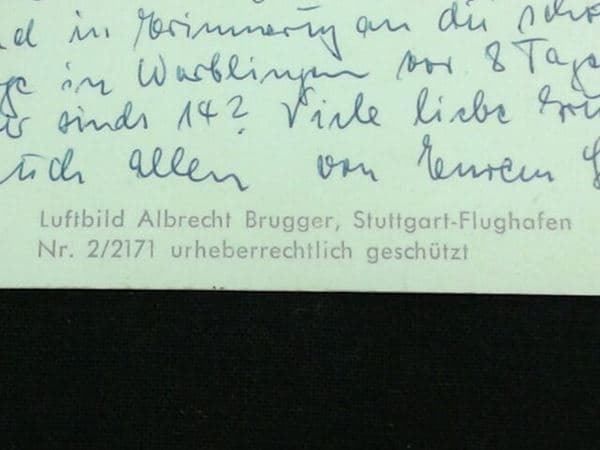 in Erinnerung an die
in Waiblingen vor 8 Tage
sinds 14? Viele liebe
allen von Eurem
Luftbild Albrecht Brugger, Stuttgart-Flughafen
Nr. 2/2171 urheberrechtlich geschützt